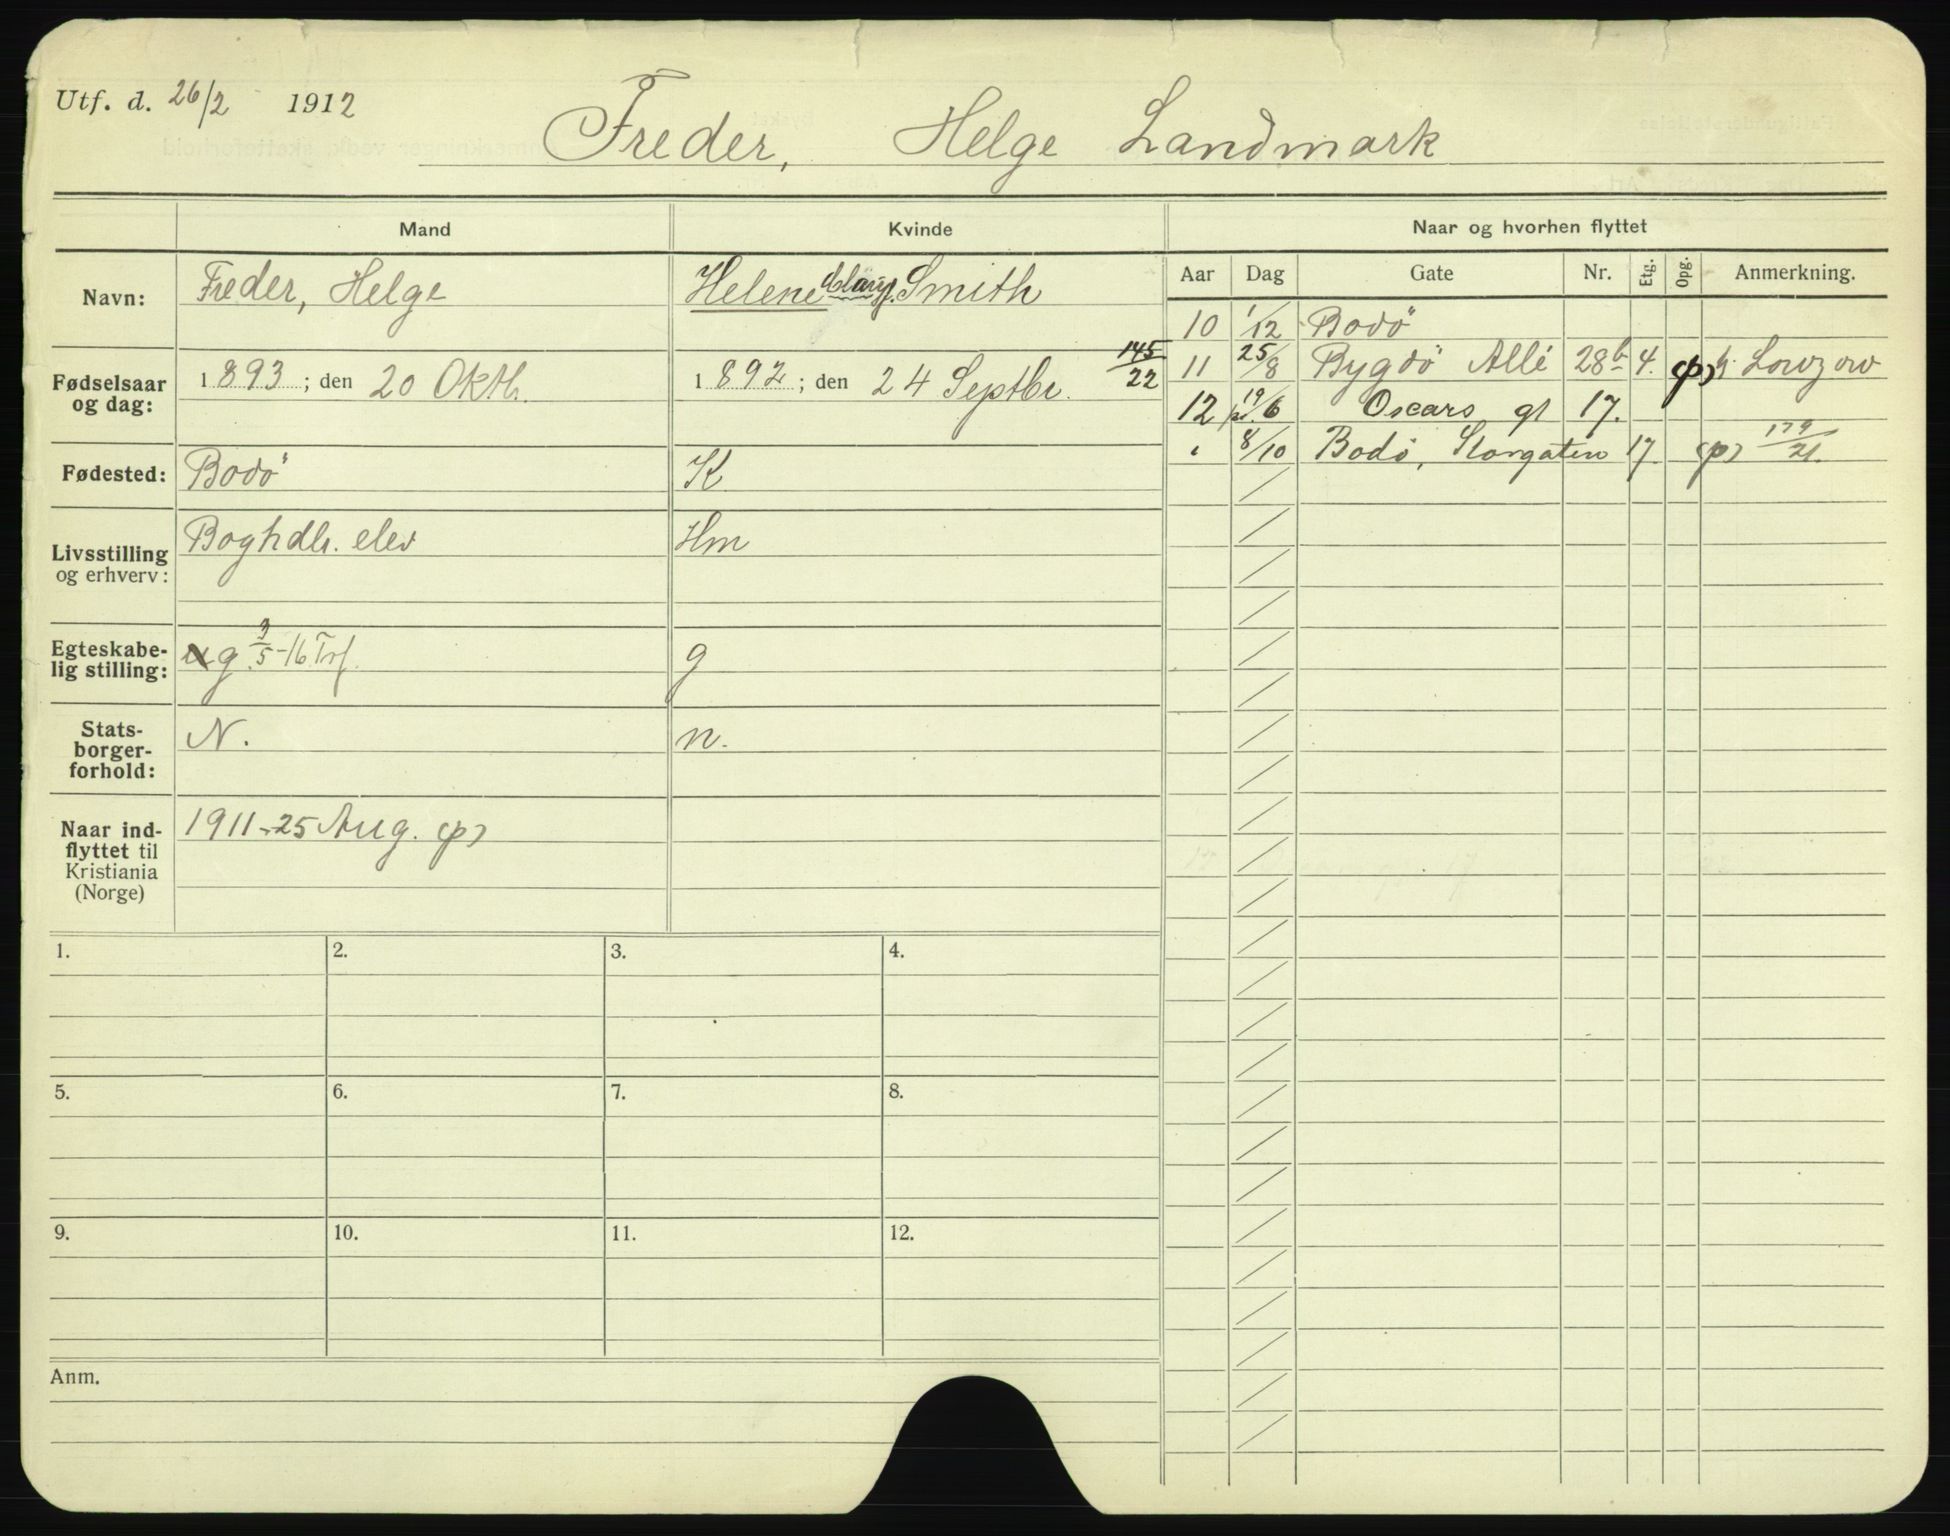 Utf. d. 26/2 1912
Freder, Helge Landmark
Mand
Kvinde
Naar og hvorhen flyttet
Navn:
Freder, Helge
Helene Smith
Fødselsaar og dag:
1893; den 20 Oktb.
1892; den 24 Septbr. 145/22
Fødested:
Bodö
K
Livsstilling og erhverv:
Boghdlr. elev
Hm
Egteskabe-
lig stilling:
ug. 3/5-16 Trf.
g
Stats-
borger-
forhold:
N.
n.
Naar ind-
flyttet til
Kristiania
(Norge)
1911-25 Aug. (p)
Aar Dag Gate Nr. Etg. Opg. Anmerkning.
10 1/12 Bodö
11 25/8 Bygdö Allé 28b 4. (p) h. Lowzow
12 19/6 Oscars gt 17.
" 8/10 Bodö, Storgaten 17 (p) 179/21.
1. 2. 3. 4.
5. 6. 7. 8.
9. 10. 11. 12.
Anm.